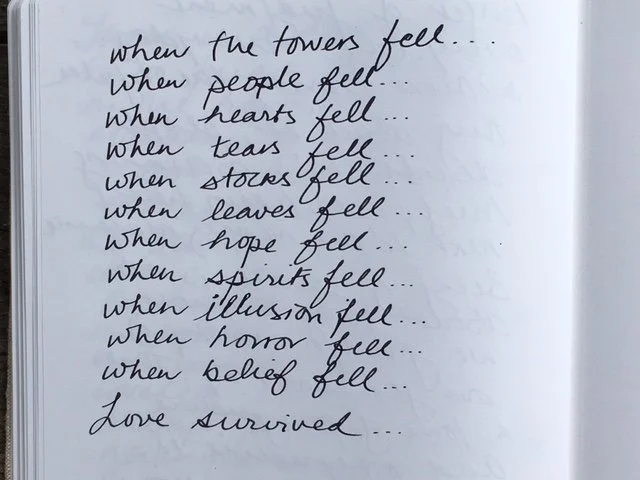 when the towers fell...
when people fell...
when hearts fell...
when tears fell...
when stocks fell...
when leaves fell...
when hope fell...
when spirits fell...
when illusion fell...
when horror fell...
when belief fell...
Love survived...